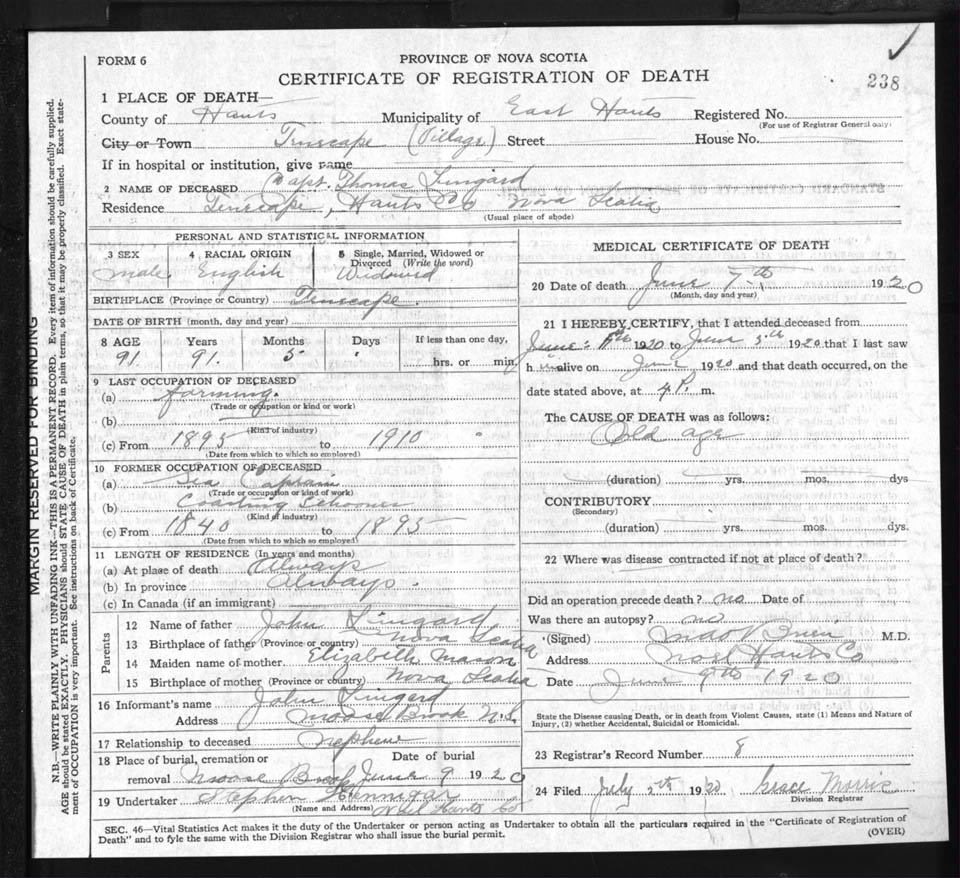 FORM 6
PROVINCE OF NOVA SCOTIA
CERTIFICATE OF REGISTRATION OF DEATH
238
1 PLACE OF DEATH—
County of Hants Municipality of East Hants Registered No.
(For use of Registrar General only)
City or Town Tenecape (Village) Street House No.
If in hospital or institution, give name
2 NAME OF DECEASED Capt. Thomas Lingard
Residence Tenecape, Hants Co Nova Scotia
(Usual place of abode)
PERSONAL AND STATISTICAL INFORMATION
3 SEX 4 RACIAL ORIGIN 5 Single, Married, Widowed or Divorced (Write the word)
male English Widowed
BIRTHPLACE (Province or Country) Tenecape
DATE OF BIRTH (month, day and year)
8 AGE Years Months Days If less than one day,
91. 91. 5 hrs. or min.
9 LAST OCCUPATION OF DECEASED
(a) farming.
(Trade or occupation or kind or work)
(b)
(Kind of industry)
(c) From 1895 to 1910
(Date from which to which so employed)
10 FORMER OCCUPATION OF DECEASED
(a) Sea Captain
(Trade or occupation or kind of work)
(b) Coasting Schooner
(Kind of industry)
(c) From 1840 to 1895
(Date from which to which so employed)
11 LENGTH OF RESIDENCE (In years and months)
(a) At place of death Always
(b) In province Always.
(c) In Canada (if an immigrant)
Parents
12 Name of father John Lingard
13 Birthplace of father (Province or country) Nova Scotia
14 Maiden name of mother Elizabeth Mason
15 Birthplace of mother (Province or country) Nova Scotia
16 Informant's name John Lingard
Address Moose Brook N.S.
17 Relationship to deceased Nephew
18 Place of burial, cremation or removal Moose Brook Date of burial June 9 1920
19 Undertaker Stephen Hennigar
(Name and Address) Noel Hants Co
MEDICAL CERTIFICATE OF DEATH
20 Date of death June 7th 1920
(Month, day and year)
21 I HEREBY CERTIFY, that I attended deceased from
June 1920 to June 5th 1920 that I last saw
h im alive on June 1920 and that death occurred, on the
date stated above, at 4 P. m.
The CAUSE OF DEATH was as follows:
Old age
(duration) yrs. mos. dys
CONTRIBUTORY
(Secondary)
(duration) yrs. mos. dys.
22 Where was disease contracted if not at place of death?
Did an operation precede death? no Date of
Was there an autopsy? no
(Signed) O'Brien M.D.
Address Noel Hants Co
Date June 9th 1920
State the Disease causing Death, or in death from Violent Causes, state (1) Means and Nature of
Injury, (2) whether Accidental, Suicidal or Homicidal.
23 Registrar's Record Number 8
24 Filed July 2th 1920 Grace Morris
Division Registrar
SEC. 46—Vital Statistics Act makes it the duty of the Undertaker or person acting as Undertaker to obtain all the particulars required in the "Certificate of Registration of
Death" and to fyle the same with the Division Registrar who shall issue the burial permit.
(OVER)
MARGIN RESERVED FOR BINDING
N.B.—WRITE PLAINLY WITH UNFADING INK—THIS IS A PERMANENT RECORD. Every item of information should be carefully supplied.
AGE should be stated EXACTLY. PHYSICIANS should STATE CAUSE OF DEATH in plain terms, so that it may be properly classified. Exact state-
ment of OCCUPATION is very important. See instructions on back of Certificate.